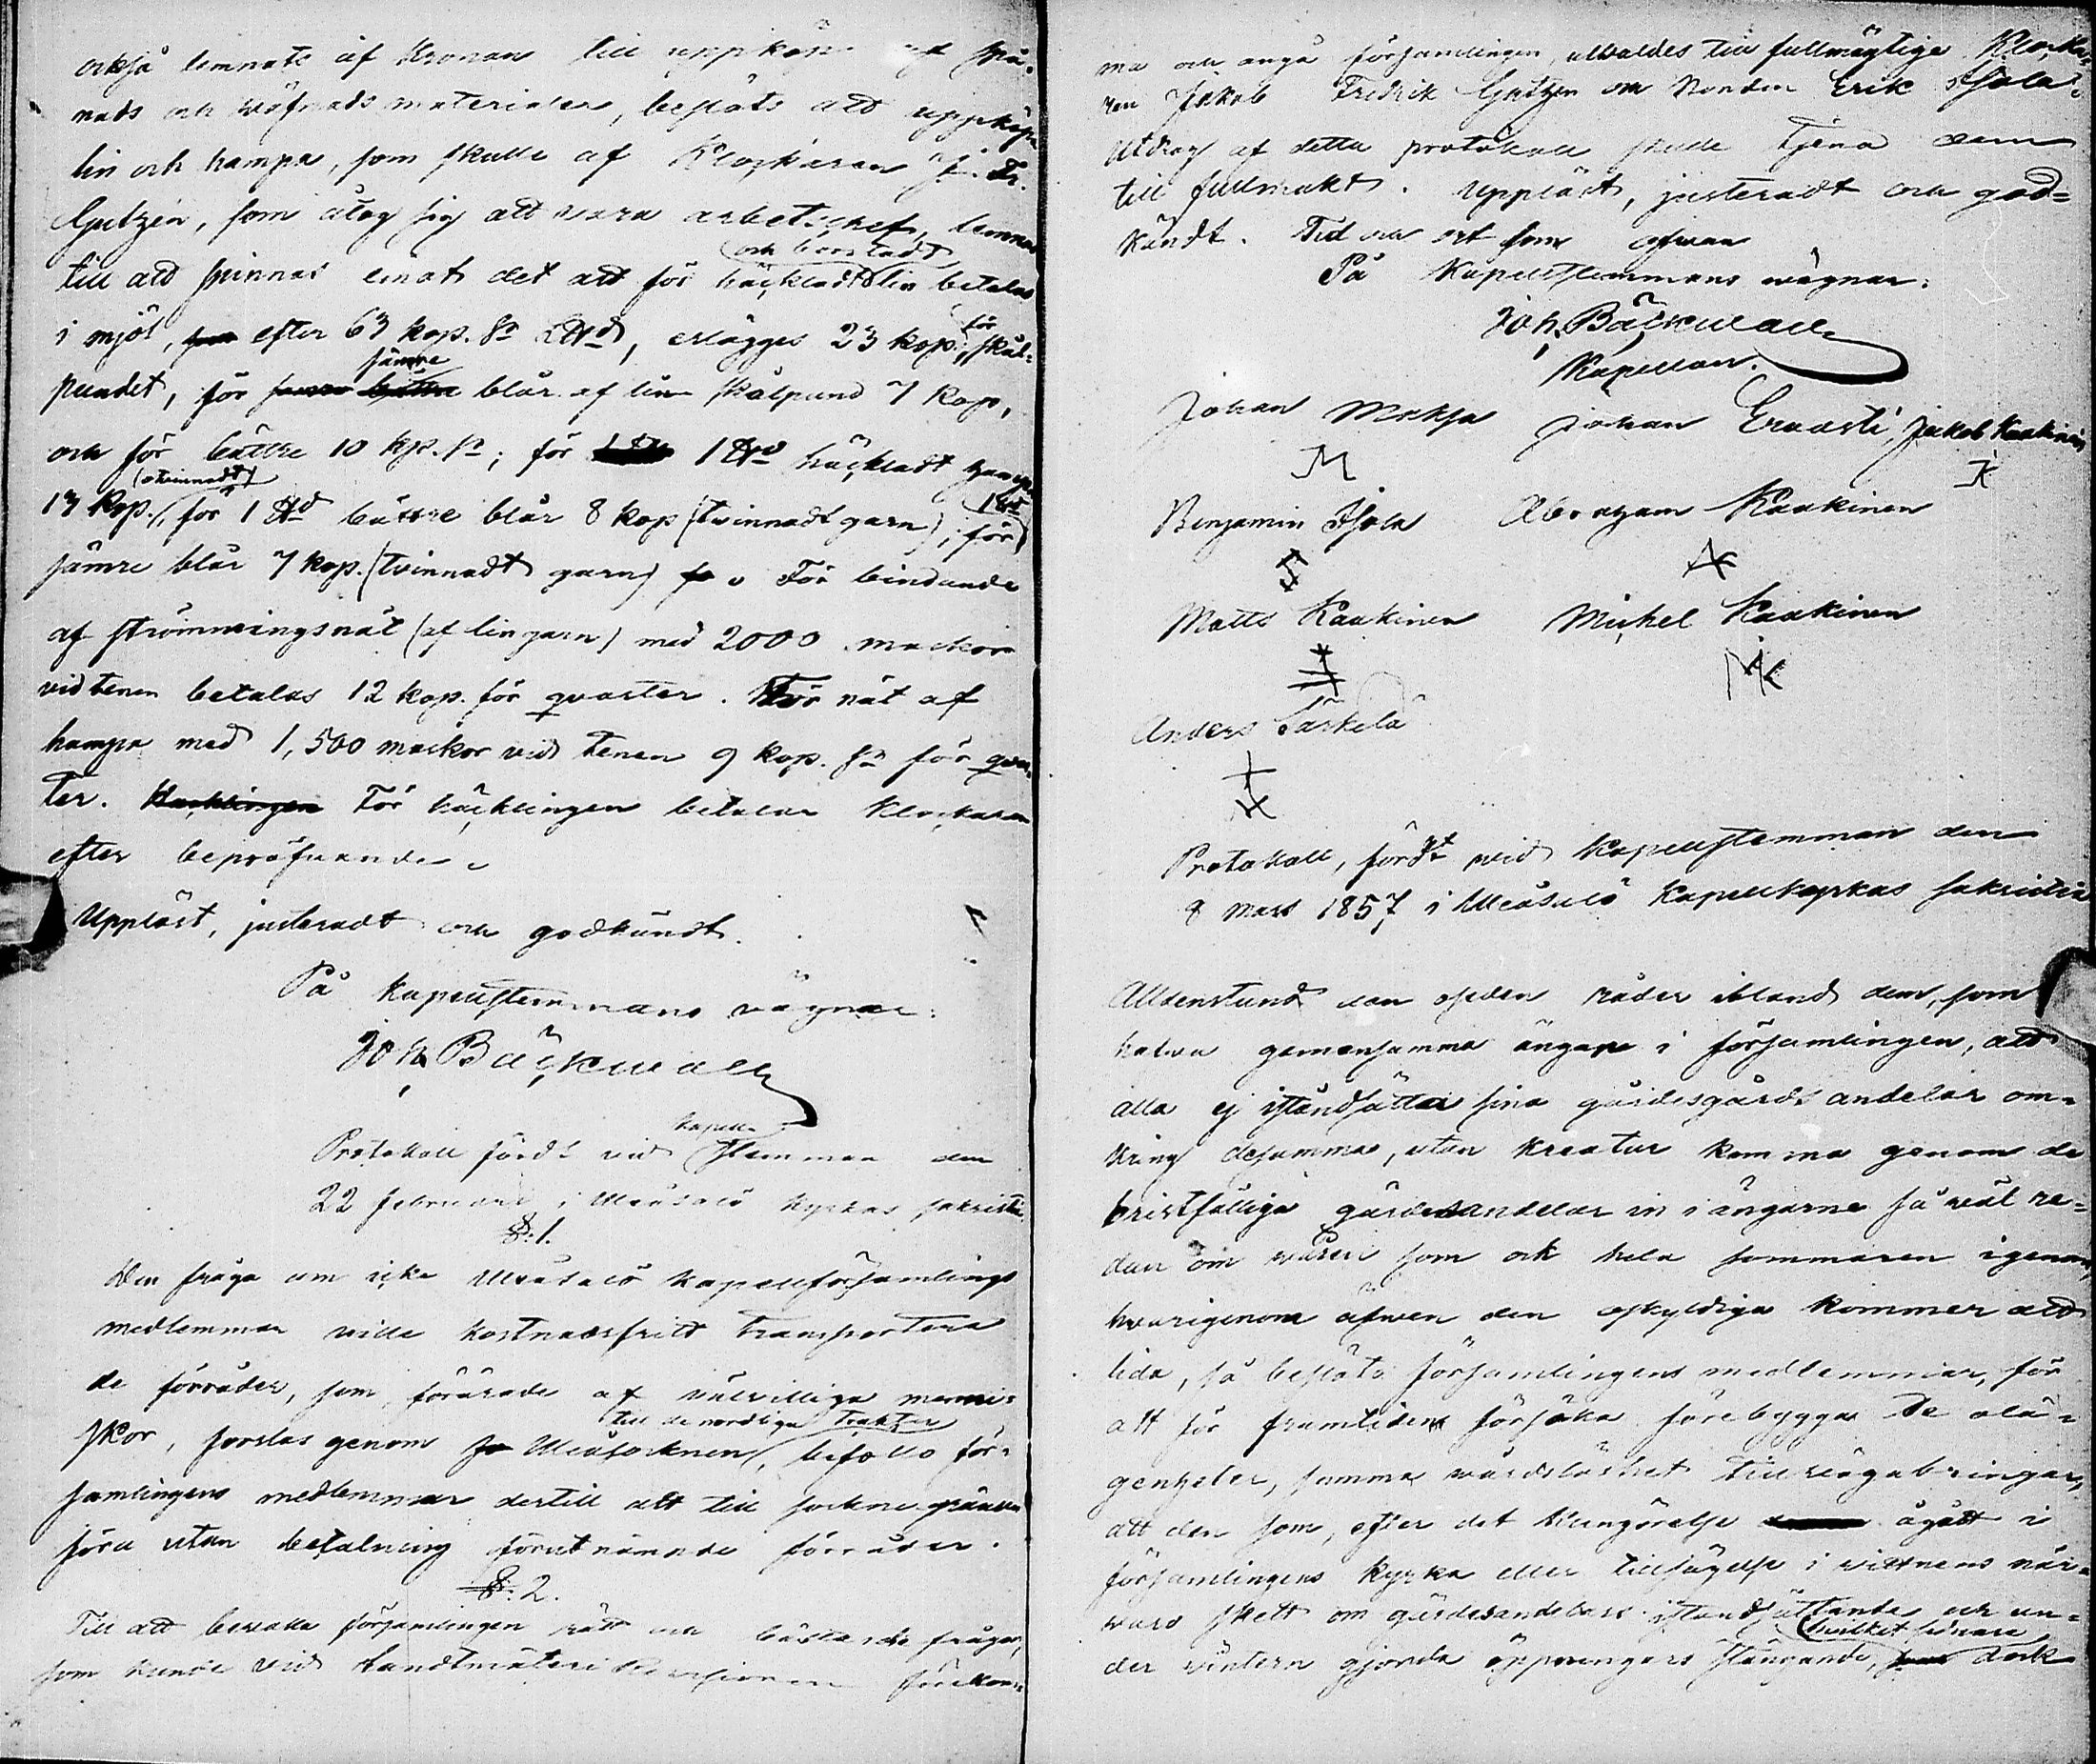 också lemnats af Kronan till uppköp af spå-
nads och wäfnads materialier, beslöts att uppköpa
lin och hampa, som skulle af Klockaren J. Fr.
Gutzén, som åtog sig att vara arbetschef, lemnas
och borstadt
till att spinnas emot det att för häckladt lin betalas
i mjöl, efter 63 kop. Sr L℔d, erlägges 23 kop. för skål-
sämre
pundet, för blår af lin skålpund 7 kop,
och för bättre 10 kp. sr; för 1 ℔d häckladt hampa
(otvinnadt)
13 kop., för 1 ℔d bättre blår 8 kop (tvinnadt garn); för 1 ℔d
sämre blår 7 kop. (tvinnadt garn). För bindande
af strömmingsnät (af lingarn) med 2000 maskor
vid tenen betalas 12 kop. för qvarter. För nät af
hampa med 1,500 maskor vid tenen 9 kop. sr för qvar-
ter. Häcklingen För häcklingen betalar Klockaren
efter bepröfvande.
Uppläst, justeradt och godkändt.
På kapellstemmans vägnar:
Joh. Bäckvall
Protokoll fördt vid Kapellstemman den
22 februari i Uleåsalo kyrkas sakristia.
§. 1.
Den fråga om icke Uleåsalo kapellförsamlings
medlemmar ville kostnadsfritt transportera
de förråder, som förärade af välvilliga menni-
till de nordliga trakter
skor, forslas genom Uleåsocknen, befollo för-
samlingens medlemmar dertill att till sockne gränsen
föra utan betalning förutnämnde förråder.
§. 2.
Till att bevaka församlingen rätt och bästa i de frågor,
som kunde vid Landtmäteri Revisionen förekom-
ma och angå församlingen, utvaldes till fullmägtige Klocka-
ren Jakob Fredrik Gutzen och Bonden Erik Isola.
Utdrag af detta protokoll skulle tjena dem
till fullmakt. Uppläst, justeradt och god-
kändt. Tid och ort som ofwan
På Kapellstemmans wägnar:
Joh. Bäckvall
Kapellan.
Johan Moksa Johan Ervasti, Jakob Kaakinen
Benjamin Isola Abraham Kaakinen
Matts Kaakinen Michel Kaakinen
Anders Särkelä
Protokoll, fördt wid Kapellstemman den
8 Mars 1857 i Uleåsalo Kapellkyrkas sakristia
Alldenstund den oseden råder ibland dem, som
hafwa gemensamma ängar i församlingen, att
alla ej iståndsätta sina gärdesgårds andelar om-
kring desamma, utan kreatur komma genom de
bristfälliga gärdesandelar in i ängarne så wäl re-
dan om wåren som ock hela sommaren igenom,
hvarigenom äfwen den oskyldiga kommer att
lida, så beslöto församlingens medlemmar, för
att för framtiden försöka förebygga de olä-
genheter, samma wårdslöshet tillwägabringar,
att den som, efter det kungörelse ågått i
församlingens kyrka eller tillsägelse i wittnens när-
waro skett om gärdesandelars iståndsättande och un-
hvilket sednare
der wintern gjorda öppningars stängande, dock